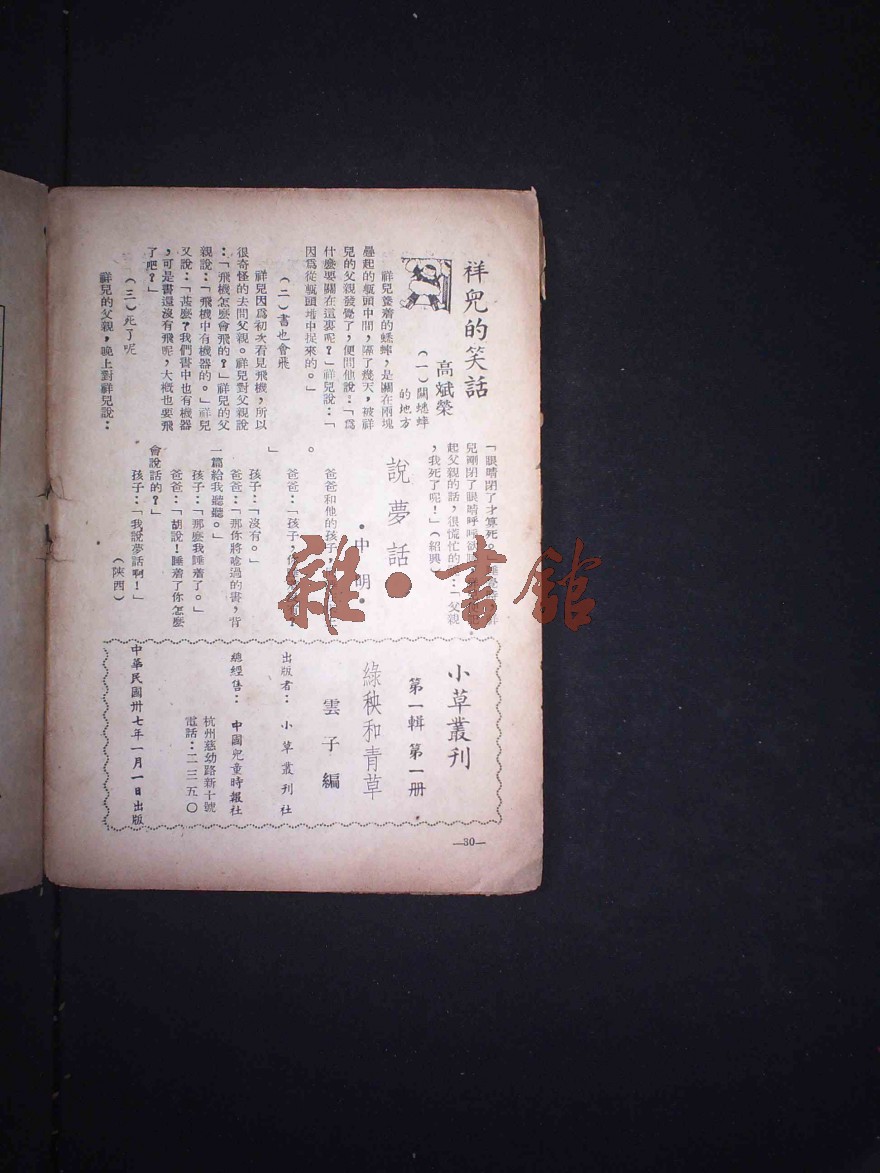 祥兒的笑話
高斌榮
(一)關蟋蟀
的地方
祥兒養着的蟋蟀,是關在兩塊
疊起的甎頭中間,隔了幾天,被祥
兒的父親發覺了,便問他說:「爲
什麽要關在這裏呢?」祥兒說:「
因爲從甎頭堆中捉來的。」
(二)書也會飛
祥兒因爲初次看見飛機,所以
很奇怪的去問父親。祥兒對父親說
:「飛機怎麽會飛的?」祥兒的父
親說:「飛機中有機器的。」祥兒
又說:「甚麽?我們書中也有機器
,可是書還沒有飛呢,大槪也要飛
了吧?」
(三)死了呢
祥兒的父親,晚上對祥兒說:
「眼睛閉了才算死
兒剛閉了眼睛呼呼欲
起父親的話,很慌忙的
:「父親
,我死了呢!」(紹興)
說夢話
•中明•
爸爸和他的孩子,
。
爸爸:「孩子,你
」
孩子:「沒有。」
爸爸:「那你將唸過的書,背
一篇給我聽聽。」
孩子:「那麽我睡着了。」
爸爸:「胡說!睡着了你怎麽
會說話的?」
孩子:「我說夢話啊!」
(陝西)
小草叢刊
第一輯 第一册
綠秧和青草
雲子編
出版者: 小草叢刊社
總經售: 中國兒童時報社
杭州慈幼路新十號
電話:二三五〇
中華民國卅七年一月一日出版
—30—
雜•書館